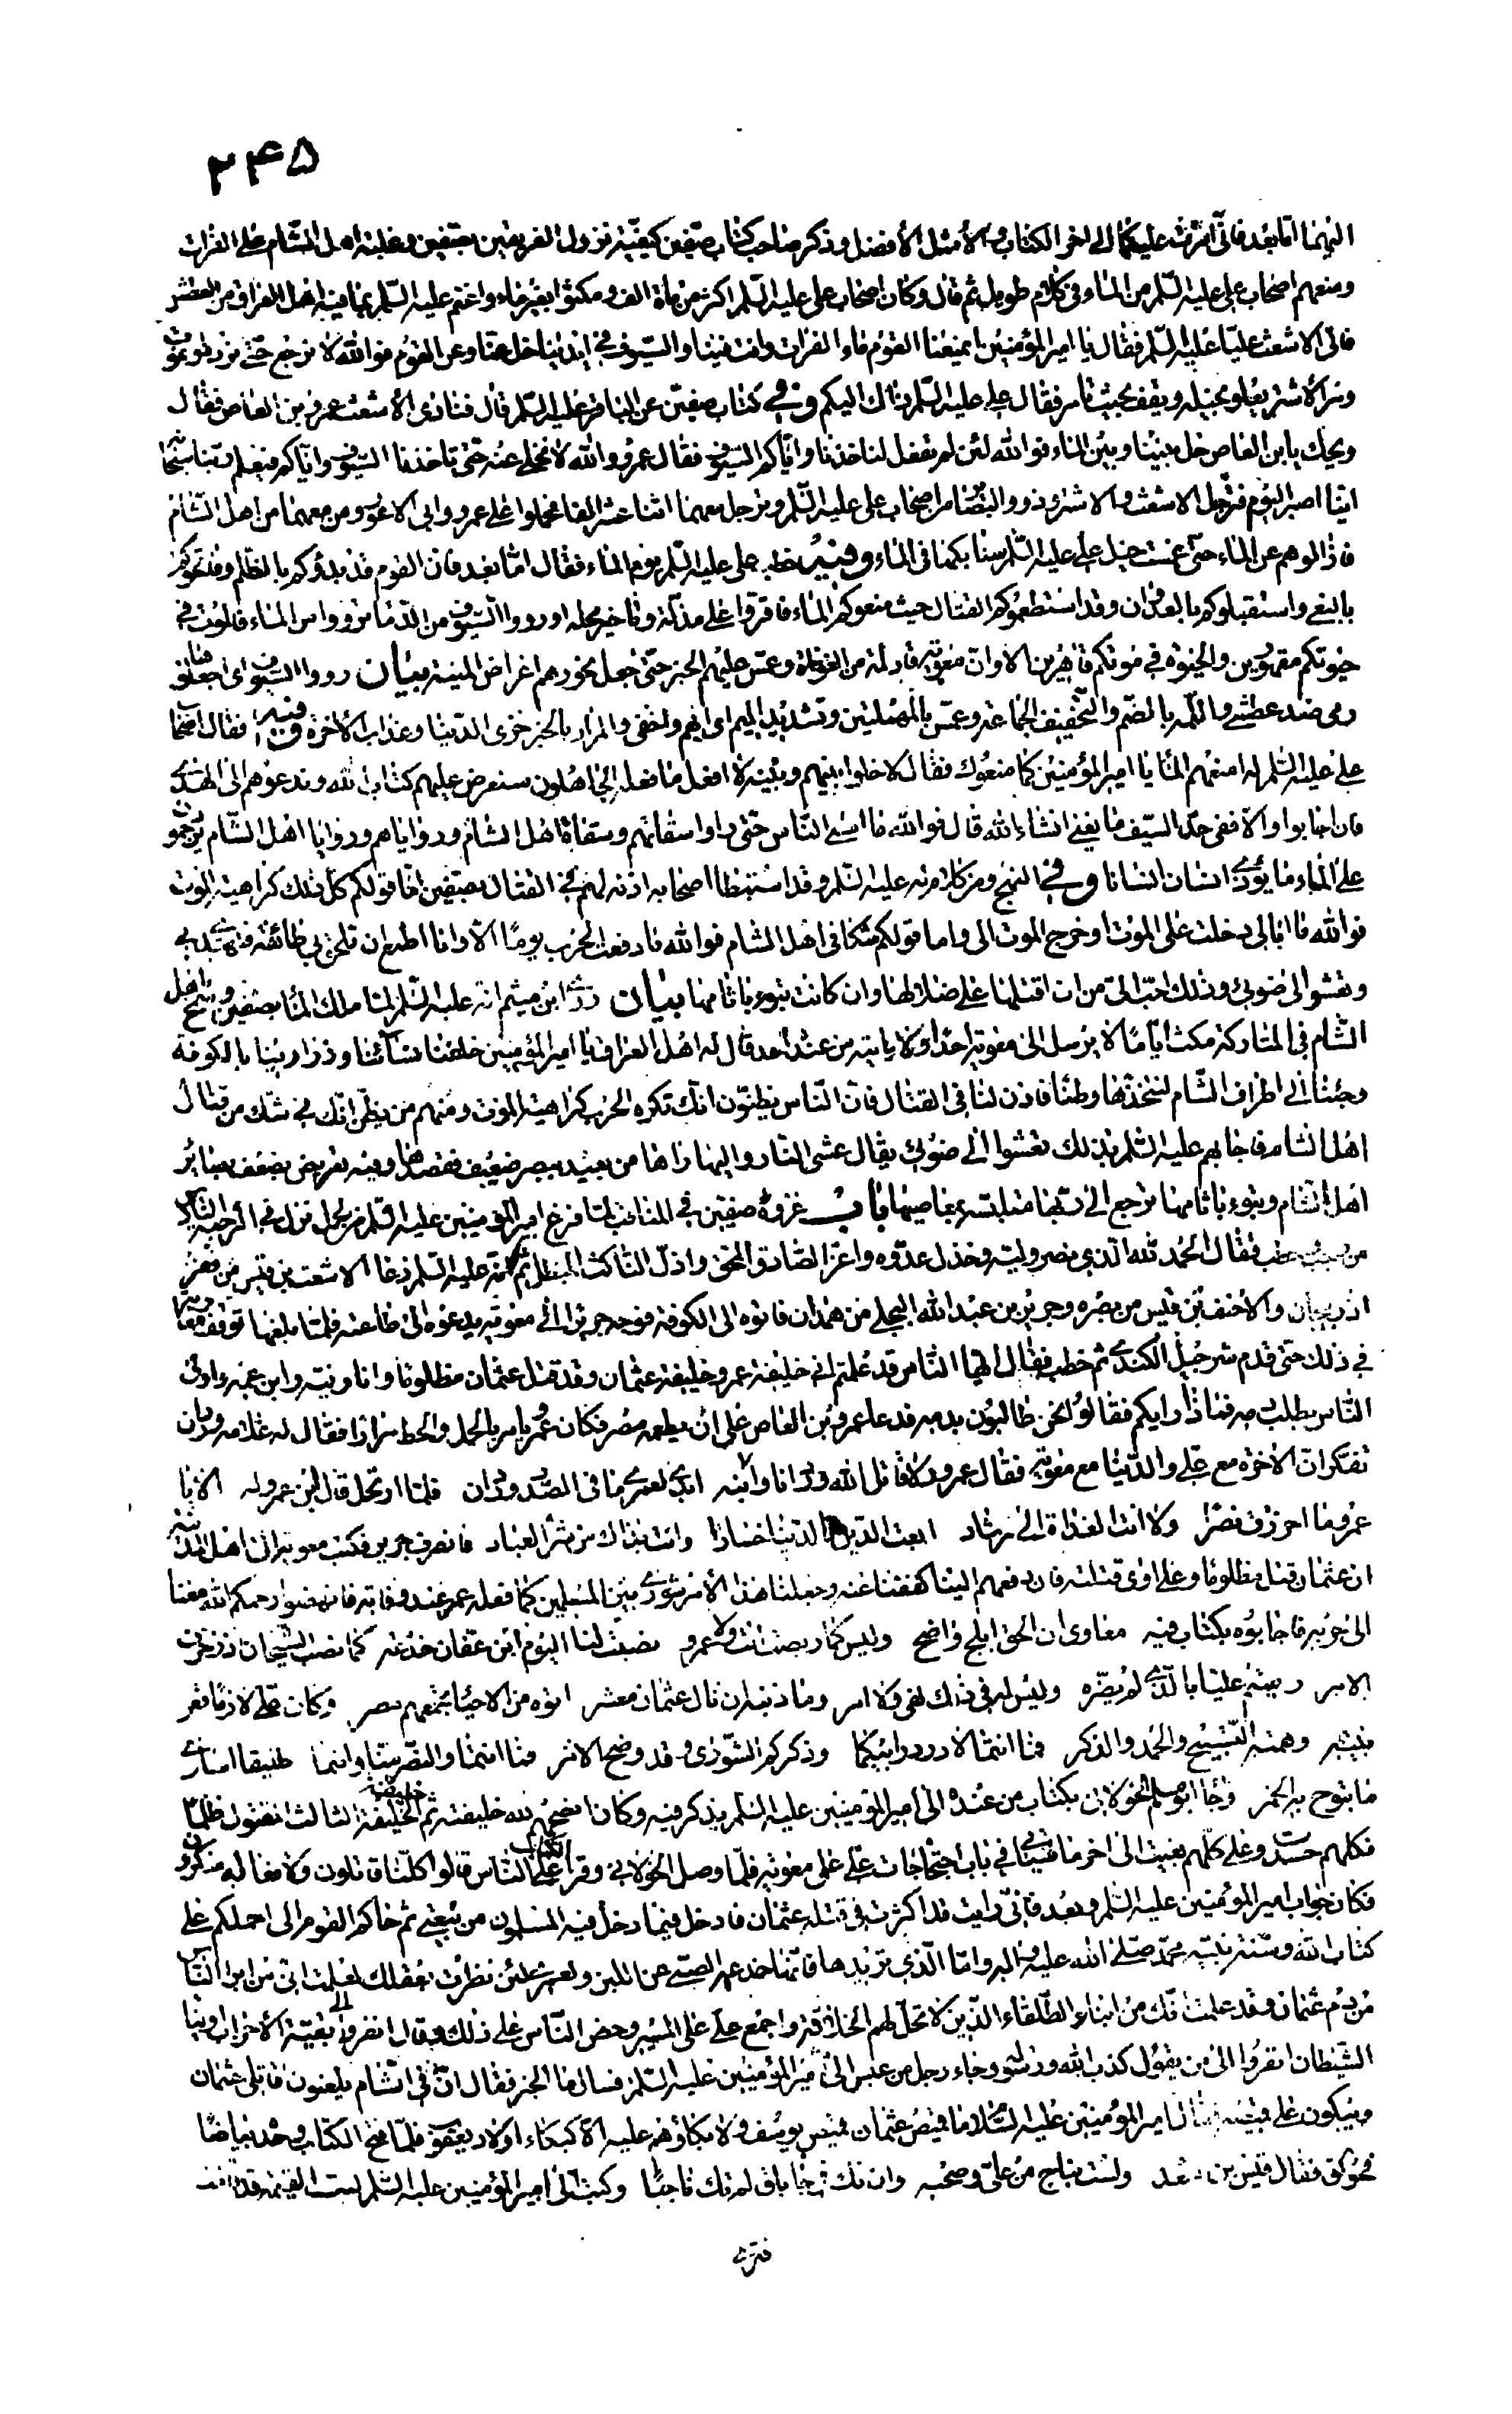 ۲۴۵
اليهما اما بعد فاني امرت عليكما الى اخر الكتاب والأمثل الأفضل وذكر صاحب كتاب صفين كيفية نزول الفريقين بصفين وغلبة اهل الشام على الفرات
ومنعهم اصحاب علي عليه السلم من الماء في كلام طويل ثم قال وكان اصحاب علي عليه السلم اكثر من ماة الف ومكثوا بغير ماء واغتم عليه السلم بما فيه اهل العراق من العطش
فاتى الاشعث عليا عليه السلم فقال يا امير المؤمنين ايمنعنا القوم ماء الفرات وانت فينا والسيوف في ايدينا خل عنا وعن القوم فوالله لا نرجع حتى نرده او نموت
ومر الأشتر يعلو بخيله ويقف بحيث تأمر فقال علي عليه السلم ذلك اليكم وفي كتاب صفين عن الباقر عليه السلم قال فنادى الأشعث عمرو بن العاص فقال
ويحك يابن العاص خل بيننا وبين الماء فوالله لئن لم تفعل لتاخذنا واياكم السيوف فقال عمرو والله لا نخلى عنه حتى تاخذنا السيوف واياكم فيعلم ربنا سبحانه
اينا اصبر اليوم فترجل الاشعث والاشتر وذووا البصاير من اصحاب علي عليه السلم وترجل معهما اثنا عشر الفا فحملوا على عمرو وابي الاعور ومن معهما من اهل الشام
فازالوهم عن الماء حتى غمست خيل علي عليه السلم سنابكها في الماء وفيه خطب علي عليه السلم يوم الماء فقال اما بعد فان القوم قد بدؤكم بالظلم وفتحوكم
بالبغي واستقبلوكم بالعدوان وقد استطعموكم القتال حيث منعوكم الماء فاقروا على مذلة وتاخير محلة او رووا السيوف من الدماء ترووا من الماء فالموت في
حيوتكم مقهورين والحيوة في موتكم قاهرين الا وان معوية قاد لمة من الغواة وعمس عليهم الخبر حتى جعل نحورهم اغراض المنية بيان رووا السيوف اي اجعلوها
روى ضد عطشى واللمه بالضم والتخفيف الجماعة وعمس بالمهملتين وتشديد الميم اى ابهم واخفى والمراد بالخبر خزى الدنيا وعذاب الأخرة وفيه فقال اصحاب
علي عليه السلم له امنعهم الماء يا امير المؤمنين كما منعوك فقال لا خلوا بينهم وبينه لا افعل ما فعله الجاهلون سنعرض عليهم كتاب الله وندعوهم الى الهدى
فان اجابوا والا ففي حد السيف ما يغني انشاء الله قال فوالله ما امسى الناس حتى راوا سقاتهم وسقاة اهل الشام ورواياهم وروايا اهل الشام يزدحمون
على الماء ما يؤذى انسان انسانا وفي النهج ومن كلام له عليه السلم وقد استبطا اصحابه اذنه لهم في القتال بصفين اما قولكم كل ذلك كراهية الموت
فوالله ما ابالى دخلت على الموت او خرج الموت الى واما قولكم شكا في اهل الشام فوالله ما دفعت الحرب يوما الا وانا اطمع ان تلحق بي طائفة فتهتدى بي
وتعشو الى ضوئي وذلك احب الى من ان اقتلها على ضلالها وان كانت تبوء باثامها بيان روى ابن ميثم انه عليه السلم لما ملك الماء بصفين وسمح باهل
الشام في المشاركة مكث اياما لا يرسل الى معوية احدا ولا ياتيه من عنده احد قال له اهل العراق يا امير المؤمنين خلفنا نسائنا وذرارينا بالكوفة
وجئنا الى اطراف الشام لنتخذها وطنا فاذن لنا في القتال فان الناس يظنون انك تكره الحرب كراهية الموت ومنهم من يظن انك في شك من قتال
اهل الشام فاجابهم عليه السلم بذلك تعشوا الى ضوئي يقال عشى النار واليها راها من بعيد ببصر ضعيف فقصدها وفيه تعريض بضعف بصائر
اهل الشام وتبوء باثامها ترجع الى ربها متلبسة بمعاصيها باب غزوة صفين في المناقب لما فرغ امير المؤمنين عليه السلم من الجمل نزل في الرحبة السادس
من رجب وخطب فقال الحمد لله الذي نصر وليه وخذل عدوه واعز الصادق المحق واذل الناكث المبطل ثم انه عليه السلم دعا الاشعث بن قيس من ثغر
اذربيجان والأحنف بن قيس من بصره وجرير بن عبد الله البجلي من همدان فاتوه الى الكوفة فوجه جريرا الى معوية يدعوه الى طاعته فلما بلغها توقف معاوية
في ذلك حتى قدم شرحبيل الكندي ثم خطب فقال ايها الناس قد علمتم اني خليفة عمر وخليفة عثمان وقد قتل عثمان مظلوما وانا وليه وابن عمه واولى
الناس بطلب دمه فماذا رايكم فقالوا نحن طالبون بدمه فدعا عمرو بن العاص على ان يطعمه مصر فكان عمرو يامر بالحمل والحط مرارا فقال له غلامه وردان
تفكر ان الاخرة مع علي والدنيا مع معوية فقال عمرو لا قاتل الله وردانا وابنه ابدى لعمري ما في الصدر وردان فلما ارتحل قال ابن عمرو له الا يا
عمرو ما احرزت نصرا ولا انت الغداة الى رشاد ابعت الدين بالدنيا خسارا وانت بذاك من شر العباد فانصرف جرير فكتب معوية الى اهل المدينة
ان عثمان قتل مظلوما وعلي اوى قتلته فان دفعهم الينا كففنا عنه وجعلنا هذا الأمر شورى بين المسلمين كما فعله عمر عند وفاته فانهضوا رحمكم الله معنا
الى حربه فاجابوه بكتاب فيه معاوى ان الحق ابلج واضح وليس كما ربصت انت ولا عمرو نصبت لنا اليوم ابن عفان خدعة كما نصب الشيخان اذ زخرف
الامر رميتم عليا بالذي لم يضره وليس له في ذلك نهى ولا امر وما ذنبه ان نال عثمان معشر اتوه من الاحياء تجمعهم مصر وكان علي لازما قعر
بيته وهمته التسبيح والحمد والذكر فما انتما لا در در ابيكما وذكركم الشورى وقد وضح الامر فما انتما والنصر منا وانتما طليقا اسارى
ما تبوح به الخمر وجاء ابو مسلم الخولاني بكتاب من عنده الى امير المؤمنين عليه السلم يذكر فيه وكان انصحهم لله خليفته ثم خليفة الخليفة الثالث المقتول ظلما
فكلهم حسدت وعلى كلهم بغيت الى اخر ما سيأتي في باب احتجاجات علي على معوية فلما وصل الخولاني وقرأ الكتاب على الناس قالوا كلنا قاتلون ولافعاله منكرون
فكان جواب امير المؤمنين عليه السلم وبعد فاني رايت قد اكثرت في قتلة عثمان فادخل فيما دخل فيه المسلمون من بيعتي ثم حاكم القوم الى احملكم على
كتاب الله وسنة نبيه محمد صلى الله عليه واله واما الذي تريدها فانها خدعة الصبي عن اللبن ولعمري لئن نظرت بعقلك لعلمت انى من ابرا الناس
من دم عثمان وقد علمت انك من ابناء الطلقاء الذين لا تحل لهم الخلافة واجمع علي على المسير وحض الناس على ذلك وقال انفروا الى بقية الأحزاب واولياء
الشيطان انفروا الى من يقول كذب الله ورسوله وجاء رجل من عبس الى امير المؤمنين عليه السلم فسال ما الخبر فقال ان في الشام يلعنون قاتلي عثمان
ويبكون على قميصه فقال امير المؤمنين عليه السلم ما قميص عثمان قميص يوسف ولا بكاؤهم عليه الا كبكاء اولاد يعقوب فلما فتح الكتاب وجده بياضا
فحوقل فقال قيس بن سعد ولست بناج من علي وصحبه وان تك في جابلق لم تك ناجيا وكتب الى امير المؤمنين عليه السلم ليت القيمة قد قامت
فترى